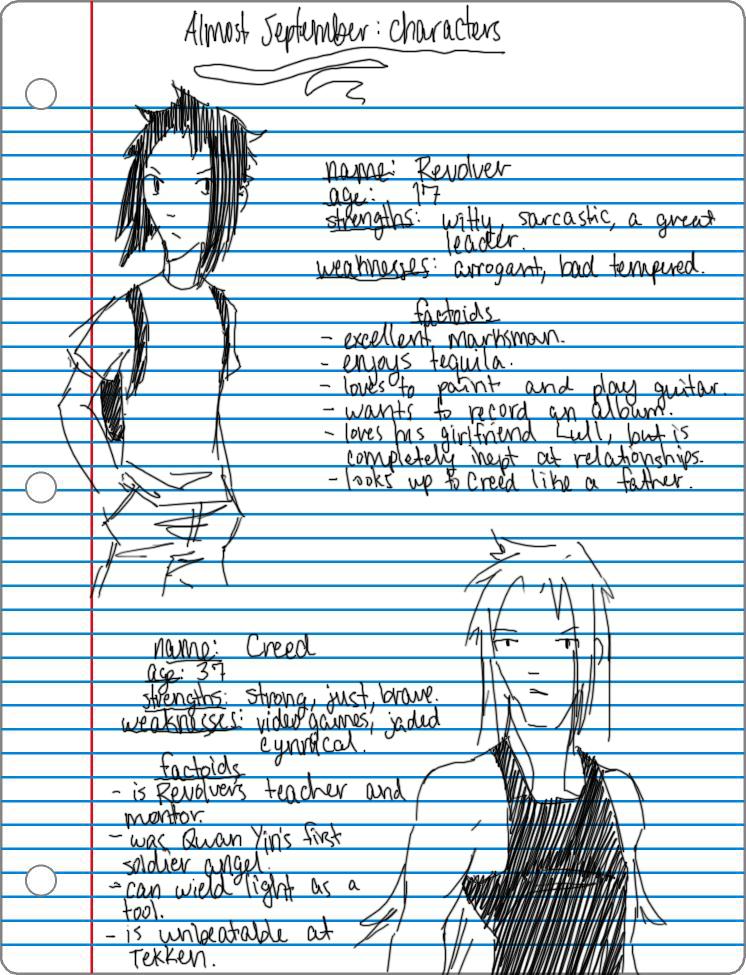 Almost September: characters
name: Revolver
age: 17
strengths: witty, sarcastic, a great
leader.
weaknesses: arrogant, bad tempered.
factoids
- excellent marksman.
- enjoys tequila.
- loves to paint and play guitar.
- wants to record an album.
- loves his girlfriend Lull, but is
completely inept at relationships.
- looks up to Creed like a father.
name: Creed
age: 37
strengths: strong, just, brave.
weaknesses: video games, jaded
cynnical.
factoids
- is Revolvers teacher and
mentor.
- was Quan Yin's first
soldier angel.
- can wield light as a
tool.
- is unbeatable at
Tekken.